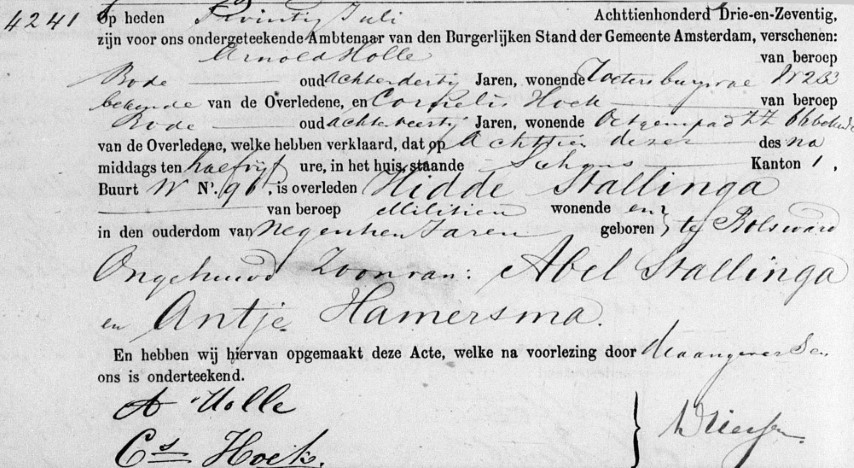 4241 Op heden Twintig Juli Achttienhonderd Drie-en-Zeventig,
zijn voor ons ondergeteekende Ambtenaar van den Burgerlijken Stand der Gemeente Amsterdam, verschenen:
Arnold Holle van beroep
Bode oud achtendertig Jaren, wonende No 233
bekende van de Overledene, en Cornelis Hoek van beroep
Bode oud achtenveertig Jaren, wonende ZZ 66 bekende
van de Overledene, welke hebben verklaard, dat op Achttien dezer des na
middags ten half vijf ure, in het huis, staande Kanton 1,
Buurt W No. 96, is overleden Hidde Stallinga
van beroep Milicien wonende en
in den ouderdom van negentien Jaren geboren } te Bolsward
Ongehuwd Zoon van: Abel Stallinga
en Antje Hamersma.
En hebben wij hiervan opgemaakt deze Acte, welke na voorlezing door de aangevers en
ons is onderteekend.
A Holle
Cs Hoek.